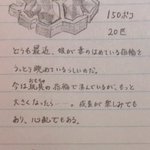 150ポコ
20匹
どうも最近、娘が妻のはめている指輪を
うっとり眺めているらしいのだ。
今は玩具の指輪で済んでいるが、もっと
おもちゃ
大きくなったら……。成長が楽しみでも
あり、心配でもある。